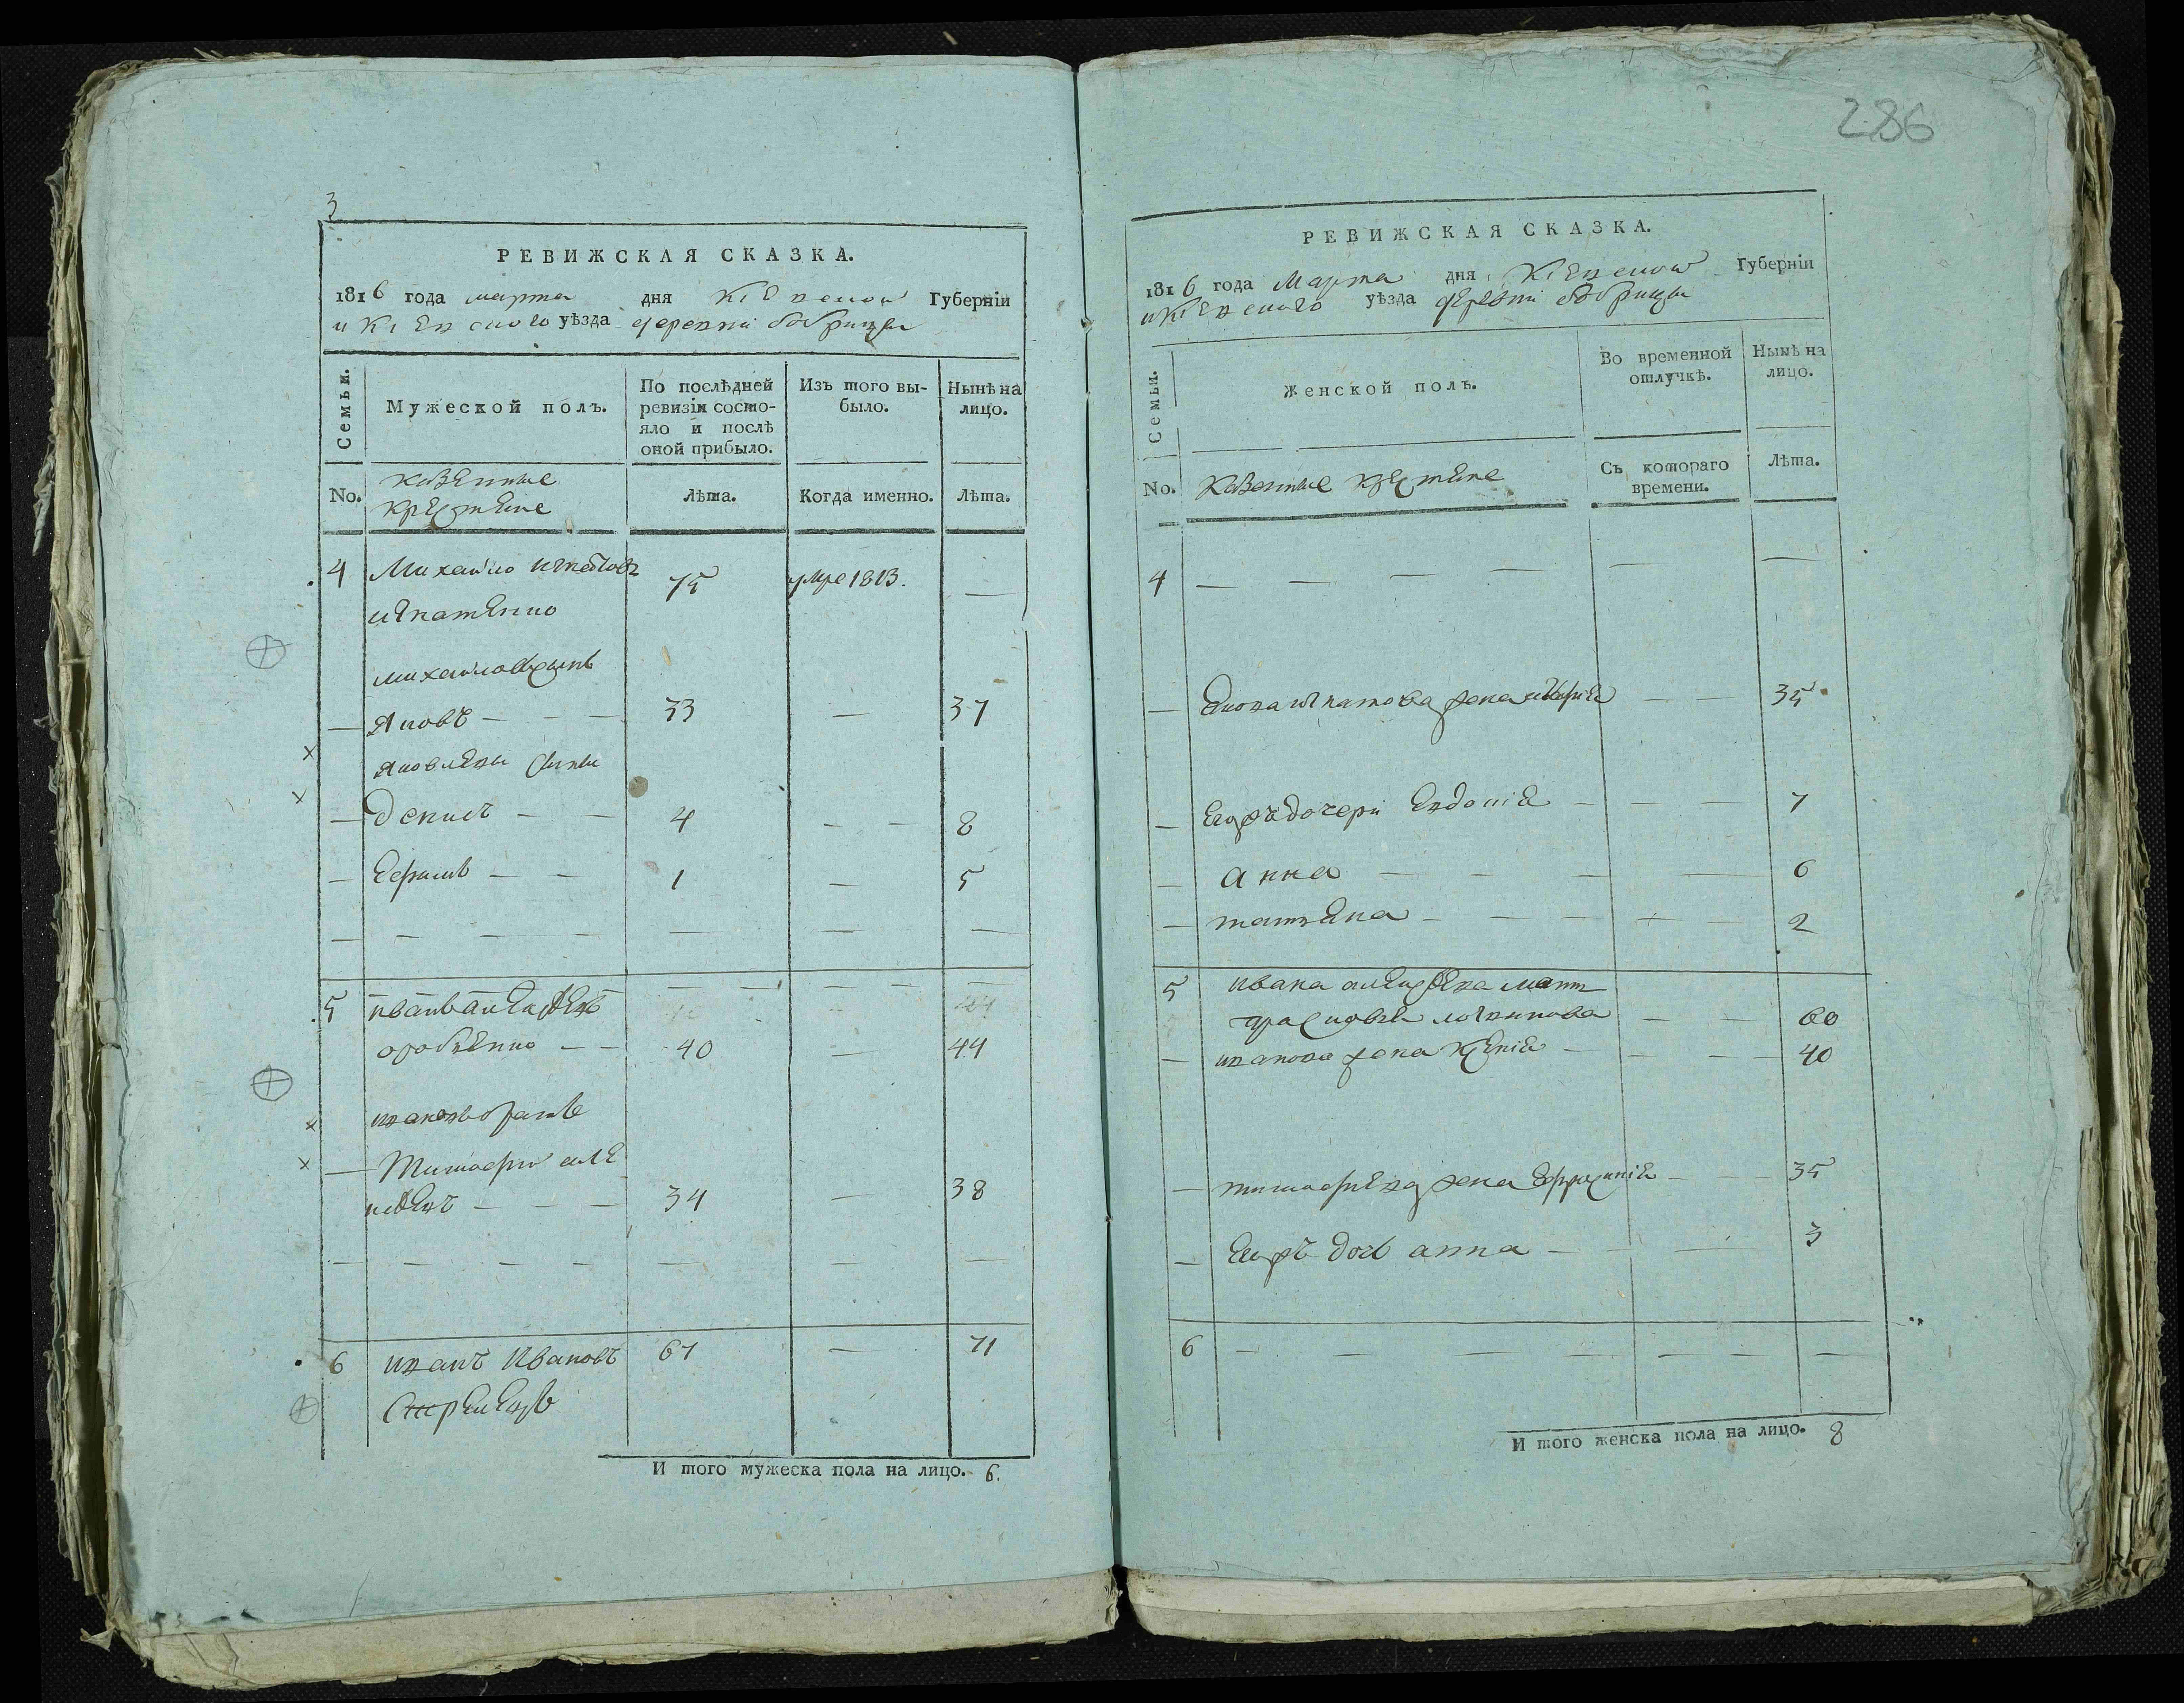 3
РЕВИЖСКАЯ СКАЗКА.
1816 года марта дня Кіевской Губерніи
и Кіевского уѣзда деревни бобрицы
Семьи.
Мужеской полъ.
По послѣдней ревизіи состо-
яло и послѣ
оной прибыло.
Изъ того вы-
было.
Нынѣ на
лицо.
No.
казенные
крестяне
Лѣта.
Когда именно.
Лѣта.
4 Михайло игнатовъ 75 умре 1813. —
игнатенко
михайловъ сынъ
— Яковъ — — — 33 — 37
яковлевы сыны
— денисъ — — 4 — — 8
— Ефимъ — — 1 — 5
5 иванъ алексѣевъ
— — 40 — 44
ивановъ братъ
— Тимофей але
ксѣевъ — — — 34 — 38
6 иванъ Ивановъ 67 — 71
Стрелецъ
И того мужеска пола на лицо. 6.
286
РЕВИЖСКАЯ СКАЗКА.
1816 года Марта дня Кіевской Губерніи
и Кіевского уѣзда деревни бобрицы
Семьи.
Женской полъ.
Во временной
отлучкѣ.
Нынѣ на
лицо.
No.
Казенные крестяне
Съ котораго
времени.
Лѣта.
4 — — — — — —
— Якова игнатова жена марія — — 35
— Егожъ дочери Евдокія — — — 7
— анна — — — — 6
— татяна — — — — 2
5 ивана алексѣева мать
— — 60
— иванова жена Ксенія — — — 40
— тимофеева жена Ефросинія — — 35
— Егожъ дочь анна — — — 3
6 — — — — — — —
И того женска пола на лицо. 8